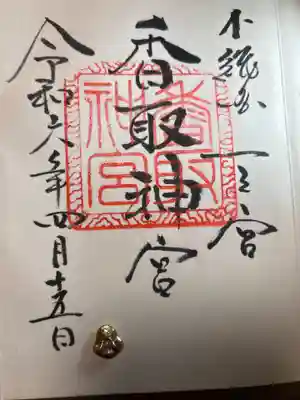 下総国一之宮
香取神宮
令和六年四月十五日
香取神宮